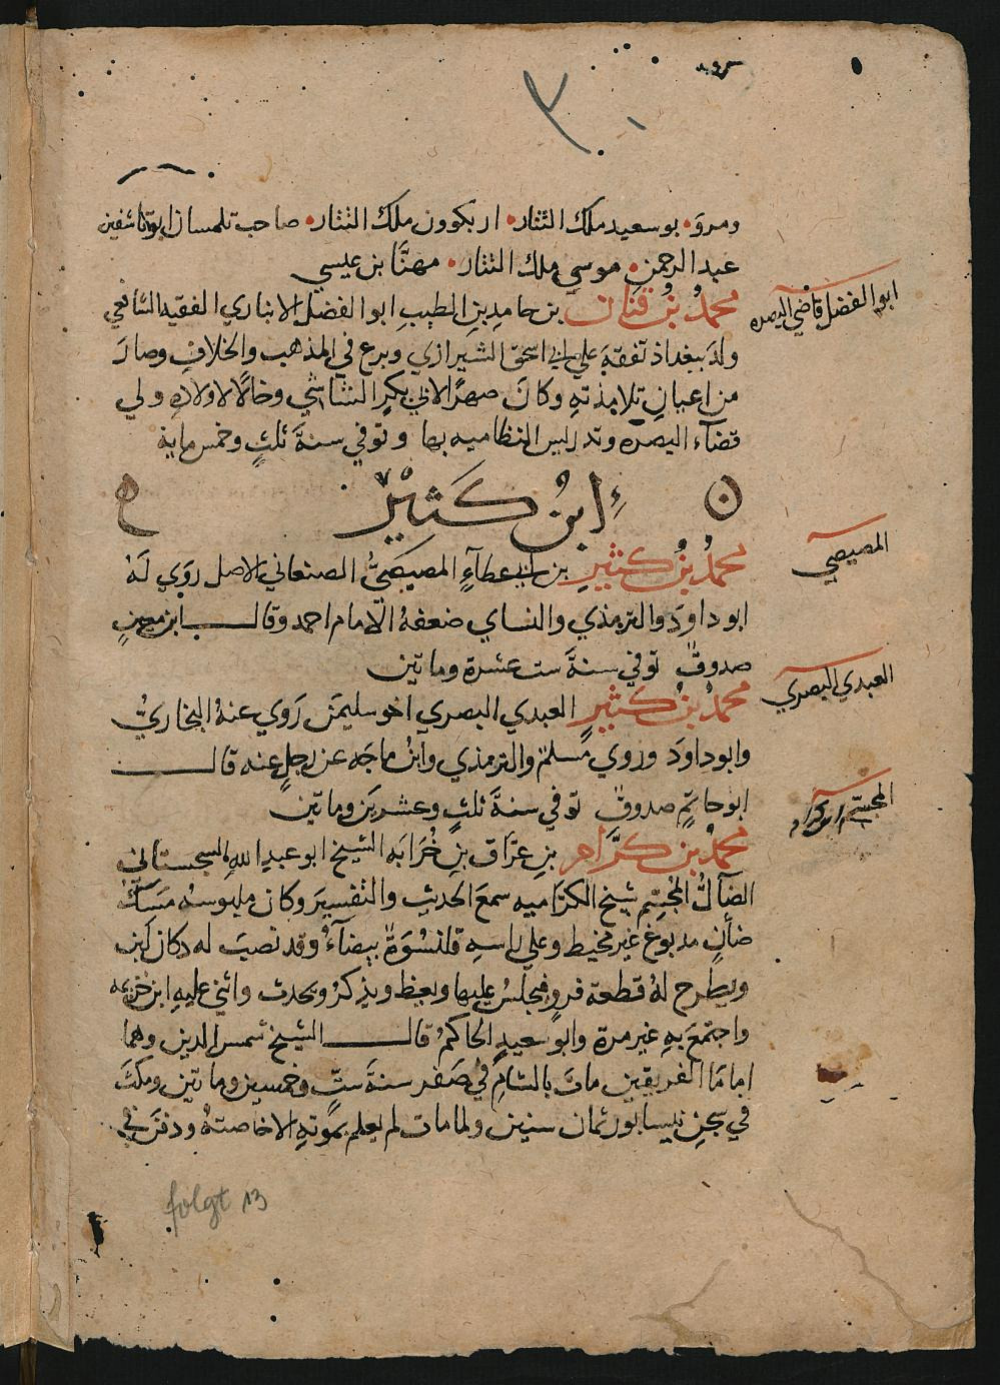 ومرو۰ بوسعيد ملك التتار۰ اربكوون ملك التتار۰ صاحب تلمسان ابو تاشفين
عبد الرحمن۰ موسي ملك التتار۰ مهنّا بن عيسي
ابو الفضل قاضي البصره
محمدُ بنُ قنان بن حامد بن الطيب ابو الفضل الانباري الفقيه الشافعي
ولد ببغداذ تفقه علي ابي اسحق الشيرازي وبرع في المذهب والخلاف وصار
من اعيان تلامذته وكان صهرًا لابي بكر الشاشي وخالًا لاولاده ولي
قضآء البصره وتدريس النظاميه بها وتوفي سنة ثلث وخمس ماية
ن ابنُ كَثيْر
المصيصي
محمدُ بنُ كثيرٍ بن ابي عطآءٍ المصيصيُّ الصنعاني الاصل روي لهُ
ابو داود والترمذي والنساي ضعفهُ الامام احمد وقال ابن معينٍ
صدوقٌ توفي سنة ست عشرة وماتين
العبدي البصري
محمدُ بنُ كثيرٍ العبدي البصري اخو سليمن روي عنهُ البخاريُّ
وابو داود وروي مسلم والترمذي وابنُ ماجَه عن رجلٍ عنه قال
ابو حاتمٍ صدوقٌ توفي سنة ثلثٍ وعشرين وماتين
المجسّم ابن كرّام
محمدُ بن كرَّام بن عرّاق بن خُرَابَه الشيخ ابو عبد الله السجستاني
الضالُّ المجسّم شيخ الكرّاميه سمع الحديث والتفسير وكان ملبوسه مَسَكُ
ضأنٍ مدبوغ غير مخيط وعلي راسه قلنسُوَةٌ بيضآءُ وقد نصب له دكان لبن
ويطرح لهُ قطعة فروٍ فيجلسُ عليها ويعظ ويذكرُ ويحدث واثني عليهِ ابن خزيمه
واجتمع بهِ غير مرة وابو سعيدٍ الحاكمُ قال الشيخ شمس الدين وهما
اماما الفريقين مات بالشام في صفر سنة ستٍّ وخمسين وماتين ومكث
في سجن نيسابور ثمان سنين ولما مات لم يعلم بموتهِ الا خاصتهُ ودفن في
folgt 13